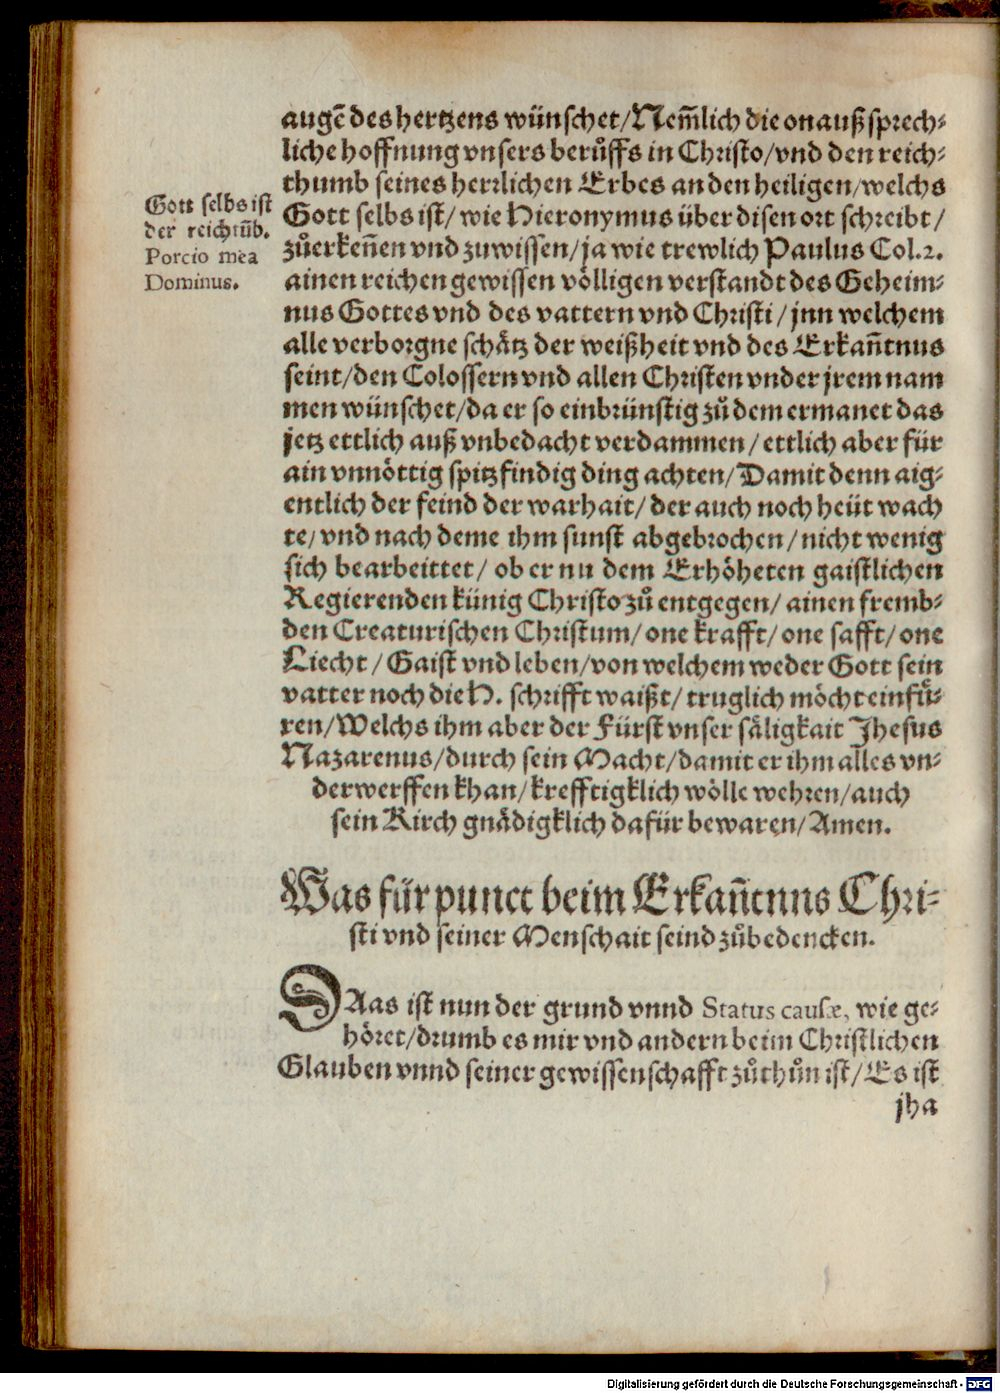 augē des hertzens wünschet/Nem̄lich die onaußsprech⸗
liche hoffnung vnsers berůffs in Christo/vnd den reich⸗
thumb seines herrlichen Erbes an den heiligen/welchs
Gott selbs ist/ wie Hieronymus über disen ort schreibt/
zůerkeñen vnd zuwissen/ja wie trewlich Paulus Col.2.
ainen reichen gewissen völligen verstandt des Geheim⸗
nus Gottes vnd des vattern vnd Christi/jnn welchem
alle verborgne schätz der weißheit vnd des Erkañtnus
seint/den Colossern vnd allen Christen vnder jrem nam
men wünschet/da er so einbrünstig zů dem ermanet das
jetz ettlich auß vnbedacht verdammen/ettlich aber für
ain vnnöttig spitzfindig ding achten/Damit denn aig⸗
entlich der feind der warhait/ der auch noch heüt wach
te/ vnd nach deme ihm sunst abgebrochen/nicht wenig
sich bearbeittet/ ob er nu dem Erhöheten gaistlichen
Regierenden künig Christo zů entgegen/ ainen fremb⸗
den Creaturischen Christum/one krafft/one safft/one
Liecht/Gaist vnd leben/von welchem weder Gott sein
vatter noch die H. schrifft waißt/truglich möcht einfü⸗
ren/Welchs ihm aber der Fürst vnser säligkait Jhesus
Nazarenus/durch sein Macht/damit er ihm alles vn⸗
derwerffen khan/krefftigklich wölle wehren/auch
sein Kirch gnädigklich dafür bewaren/Amen.
Gott selbs ist
der reichtūb.
Porcio mea
Dominus.
Was für punct beim Erkañtnus Chri⸗
sti vnd seiner Menschait seind zůbedencken.
DAas ist nun der grund vnnd Status causæ, wie ge⸗
höret/drumb es mir vnd andern beim Christlichen
Glauben vnnd seiner gewissenschafft zůthůn ist/Es ist
jha
Digitalisierung gefördert durch die Deutsche Forschungsgemeinschaft - DFG